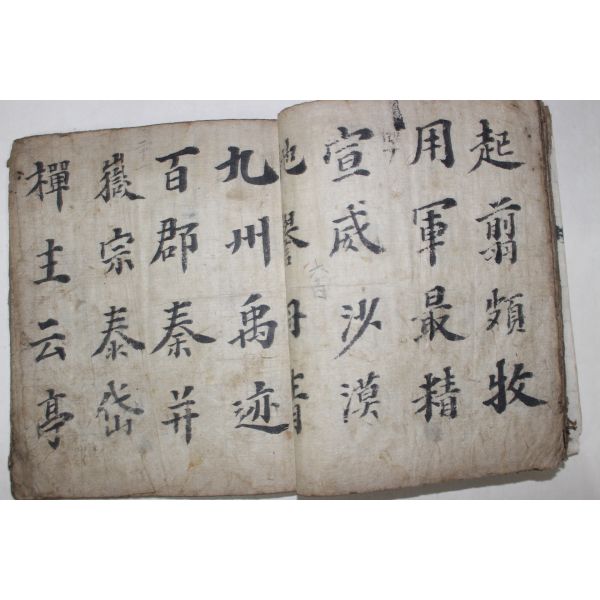 起翦頗牧
用軍最精
宣威沙漠
馳譽丹青
六百
九州禹迹
百郡秦并
嶽宗泰岱
樿主云亭